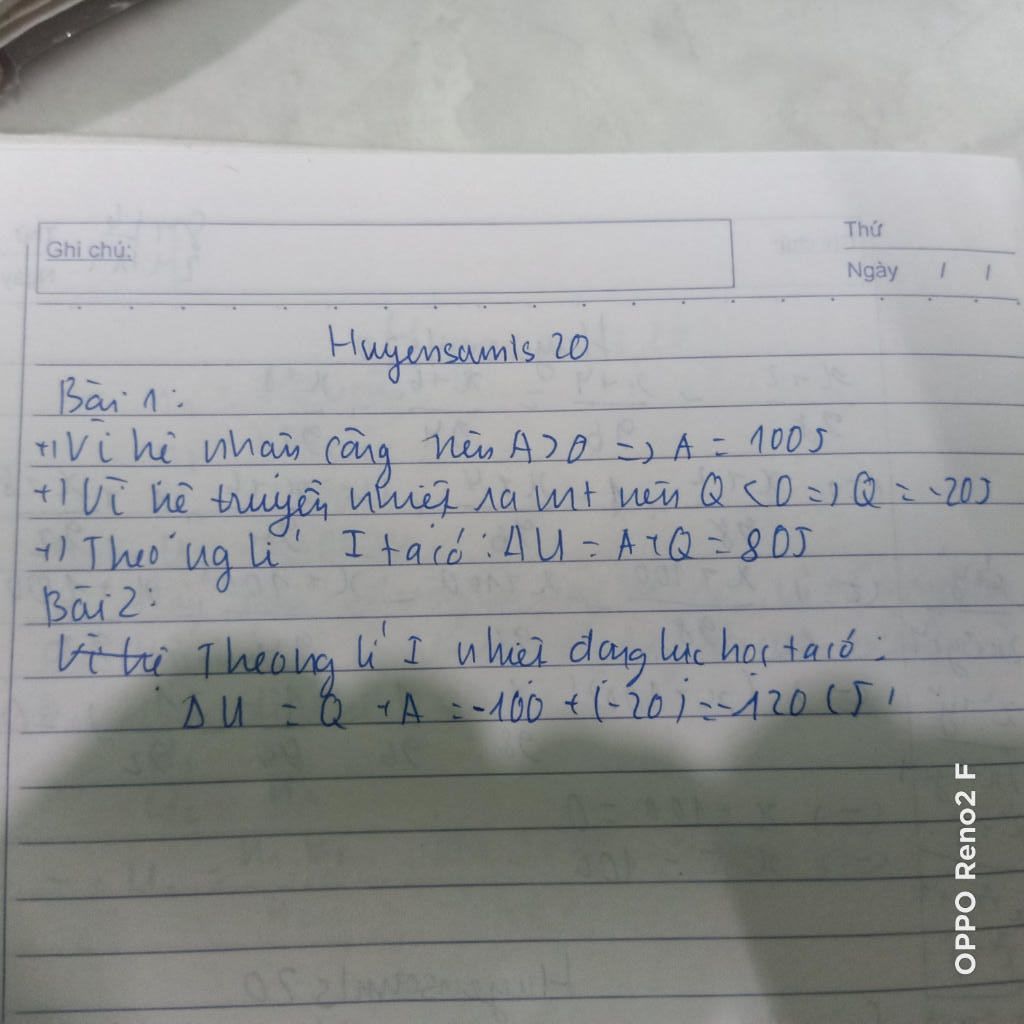 Ghi chú:
Thứ
Ngày / /
Huyensam1s 20
Bài 1:
+) Vì hệ nhận công nên A > 0 => A = 100J
+) Vì hệ truyền nhiệt ra mt nên Q < 0 => Q = -20J
+) Theo ng lí I ta có: ΔU = A + Q = 80J
Bài 2:
Theo ng lí I nhiệt động lực học ta có:
ΔU = Q + A = -100 + (-20) = -120 (J)
OPPO Reno2 F